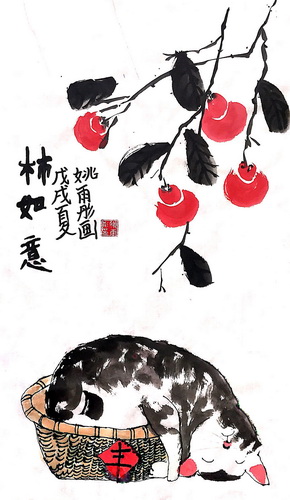 柿如意
戊戌夏
姚雨彤画
丰